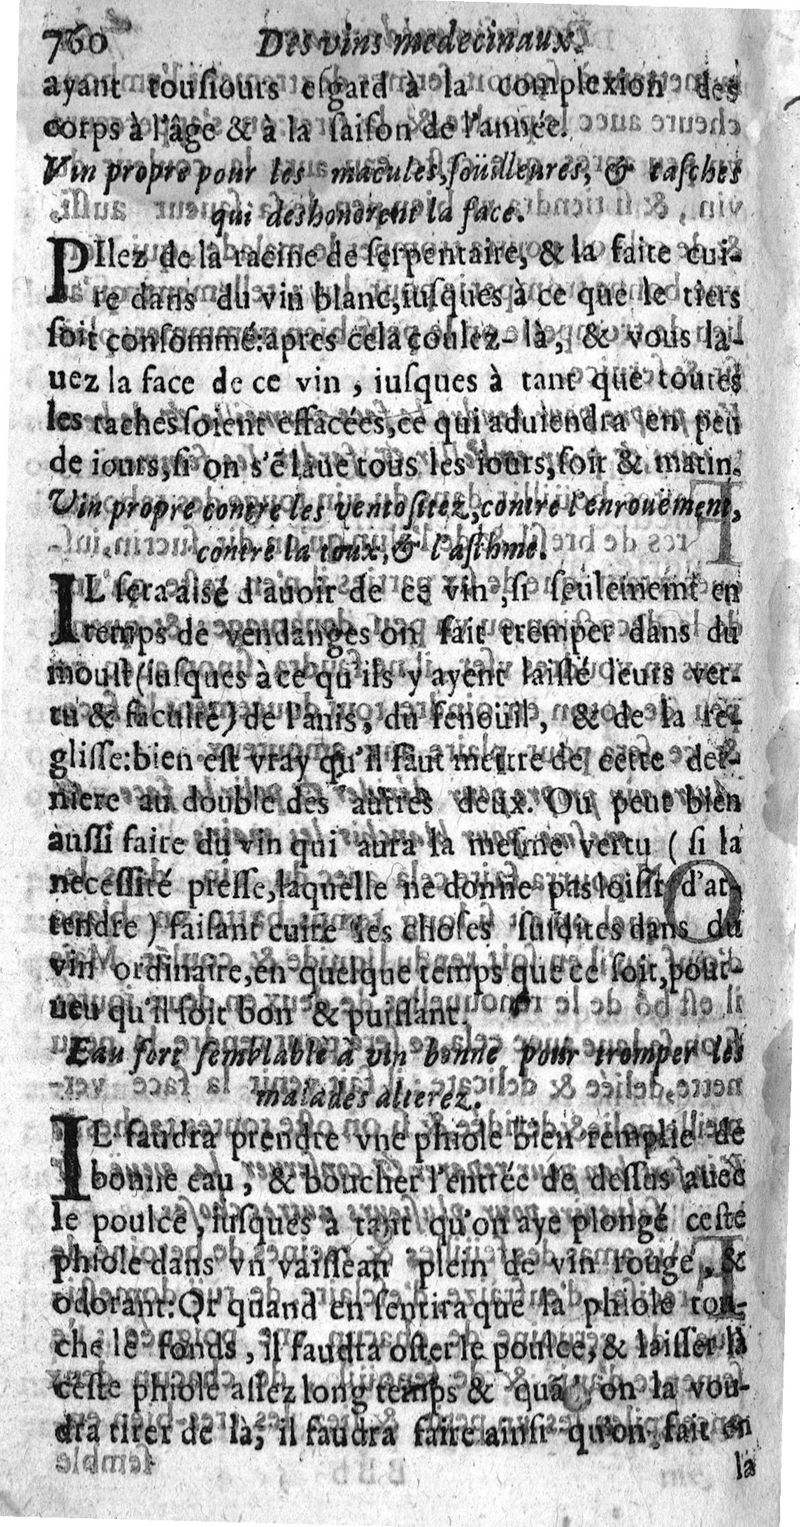 760 Des vins medecinaux.
ayant tousiours esgard à la complexion des
corps à l'âge & à la saison de l'année.
Vin propre pour les macules, soüilleures, & tasches
qui deshonorent la face.
PIlez de la racine de serpentaire, & la faite cui-
re dans du vin blanc, iusques à ce que le tiers
soit consommé: apres cela coulez-là, & vous la-
uez la face de ce vin, iusques à tant que toutes
les taches soient effacées, ce qui aduiendra en peu
de iours, si on s'é laue tous les iours, soir & matin.
Vin propre contre les ventositez, contre l'enrouement,
contre la toux, & l'asthme.
IL sera aisé d'auoir de ce vin, si seulement en
temps de vendanges on fait tremper dans du
moust (iusques à ce qu'ils y ayent laissé leurs ver-
tu & faculté) de l'anis, du fenoüil, & de la re-
glisse: bien est vray qu'il faut mettre de cette der-
niere au double des autres deux. Ou peut bien
aussi faire du vin qui aura la mesme vertu (si la
necessité presse, laquelle ne donne pas loisir d'at-
tendre) faisant cuire les choses susdites dans du
vin ordinaire, en quelque temps que ce soit, pour-
ueu qu'il soit bon & puissant.
Eau fort semblable à vin bonne pour tromper les
malades alterez.
IL faudra prendre vne phiole bien remplie de
bonne eau, & boucher l'entrée de dessus auec
le poulce, iusques à tant qu'on aye plongé ceste
phiole dans vn vaisseau plein de vin rouge, &
odorant: Or quand en sentira que la phiole tou-
che le fonds, il faudra oster le poulce, & laisser là
ceste phiole assez long temps & quand on la vou-
dra tirer de là, il faudra faire ainsi qu'on fait en
la